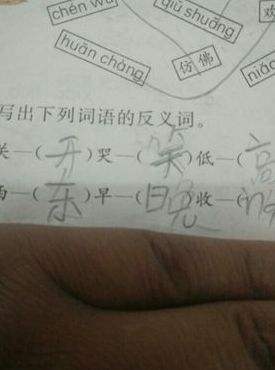 chén wǔ
qiū shuǎng
欢
huān chàng
仿佛
niǎo
写出下列词语的反义词。
关—(开) 哭—(笑) 低—(高
西—(东) 早—(晚) 收—(